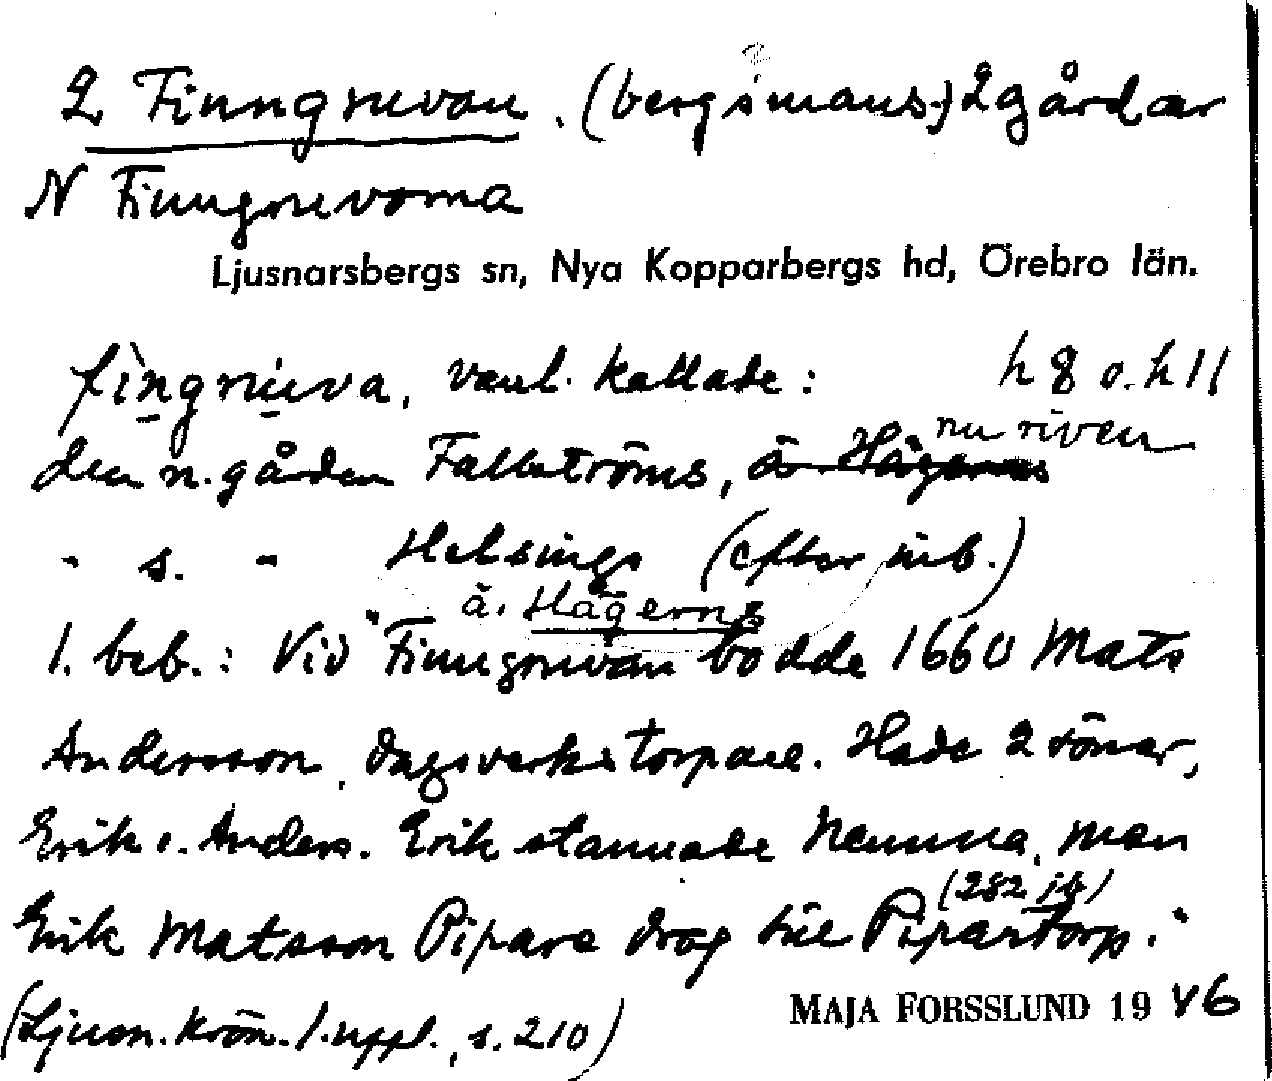 2 Finngruvan. (bergsmans-) 2 gårdar
N Finngruvorna
Ljusnarsbergs sn, Nya Kopparbergs hd, Örebro län.
fìngrúva, vanl. kallade: h 8 o. h 11
nu riven
den n. gården Fallströms, ä. Hägerns
- s. - Helsings (efter inb.)
ä. Hägerns
1. beb.: Vid "Finngruvan bodde 1660 Mats
Andersson, dagsverkstorpare. Hade 2 söner,
Erik o. Anders. Erik stannade hemma, men
(282 jb)
Erik Matsson Pipare drog till Pipartorp."
(Ljusn. krön. 1. uppl., s. 210)
MAJA FORSSLUND 19 46